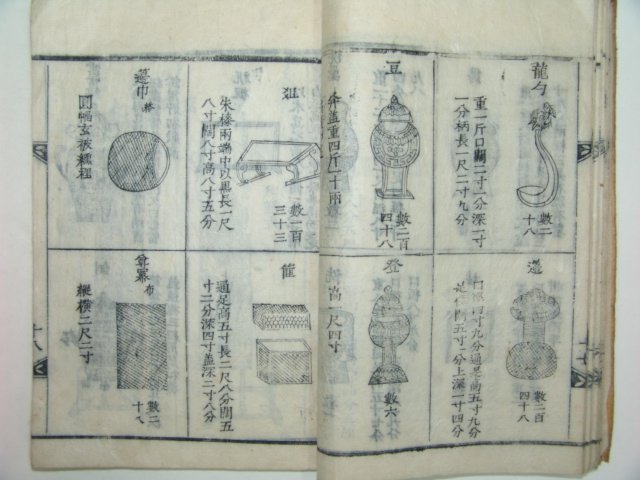 龍勺
重一斤口闊二寸一分深一寸
一分柄長一尺二寸九分
數二
十八
豆
弁盖重四斤一十兩
數二百
四十八
籩
口徑四寸九分通足高五寸九分
足徑五寸一分上深一寸四分
數二百
四十八
登
高一尺四寸
數六
俎
朱漆兩端中以黑長一尺
八寸闊八寸高八寸五分
數一百
三十三
籩巾
圓幅玄被纁裡
篚
通足高五寸長二尺八分闊五
寸二分深四寸盖深二寸八分
尊冪
布
縱橫二尺二寸
數二
十八
十八